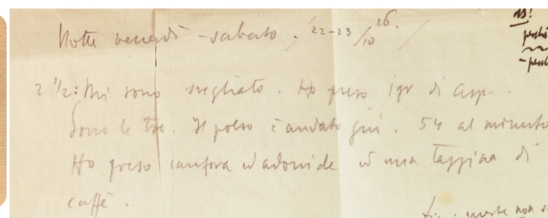 Notte venerdì - sabato, 22-23/10 26.
2 ½: Mi sono svegliato. Ho preso 1 gr di asp.
Sono le tre. Il polso è andato giù. 54 al minuto
Ho preso canfora ed adonide ed una tazzina di
caffè.